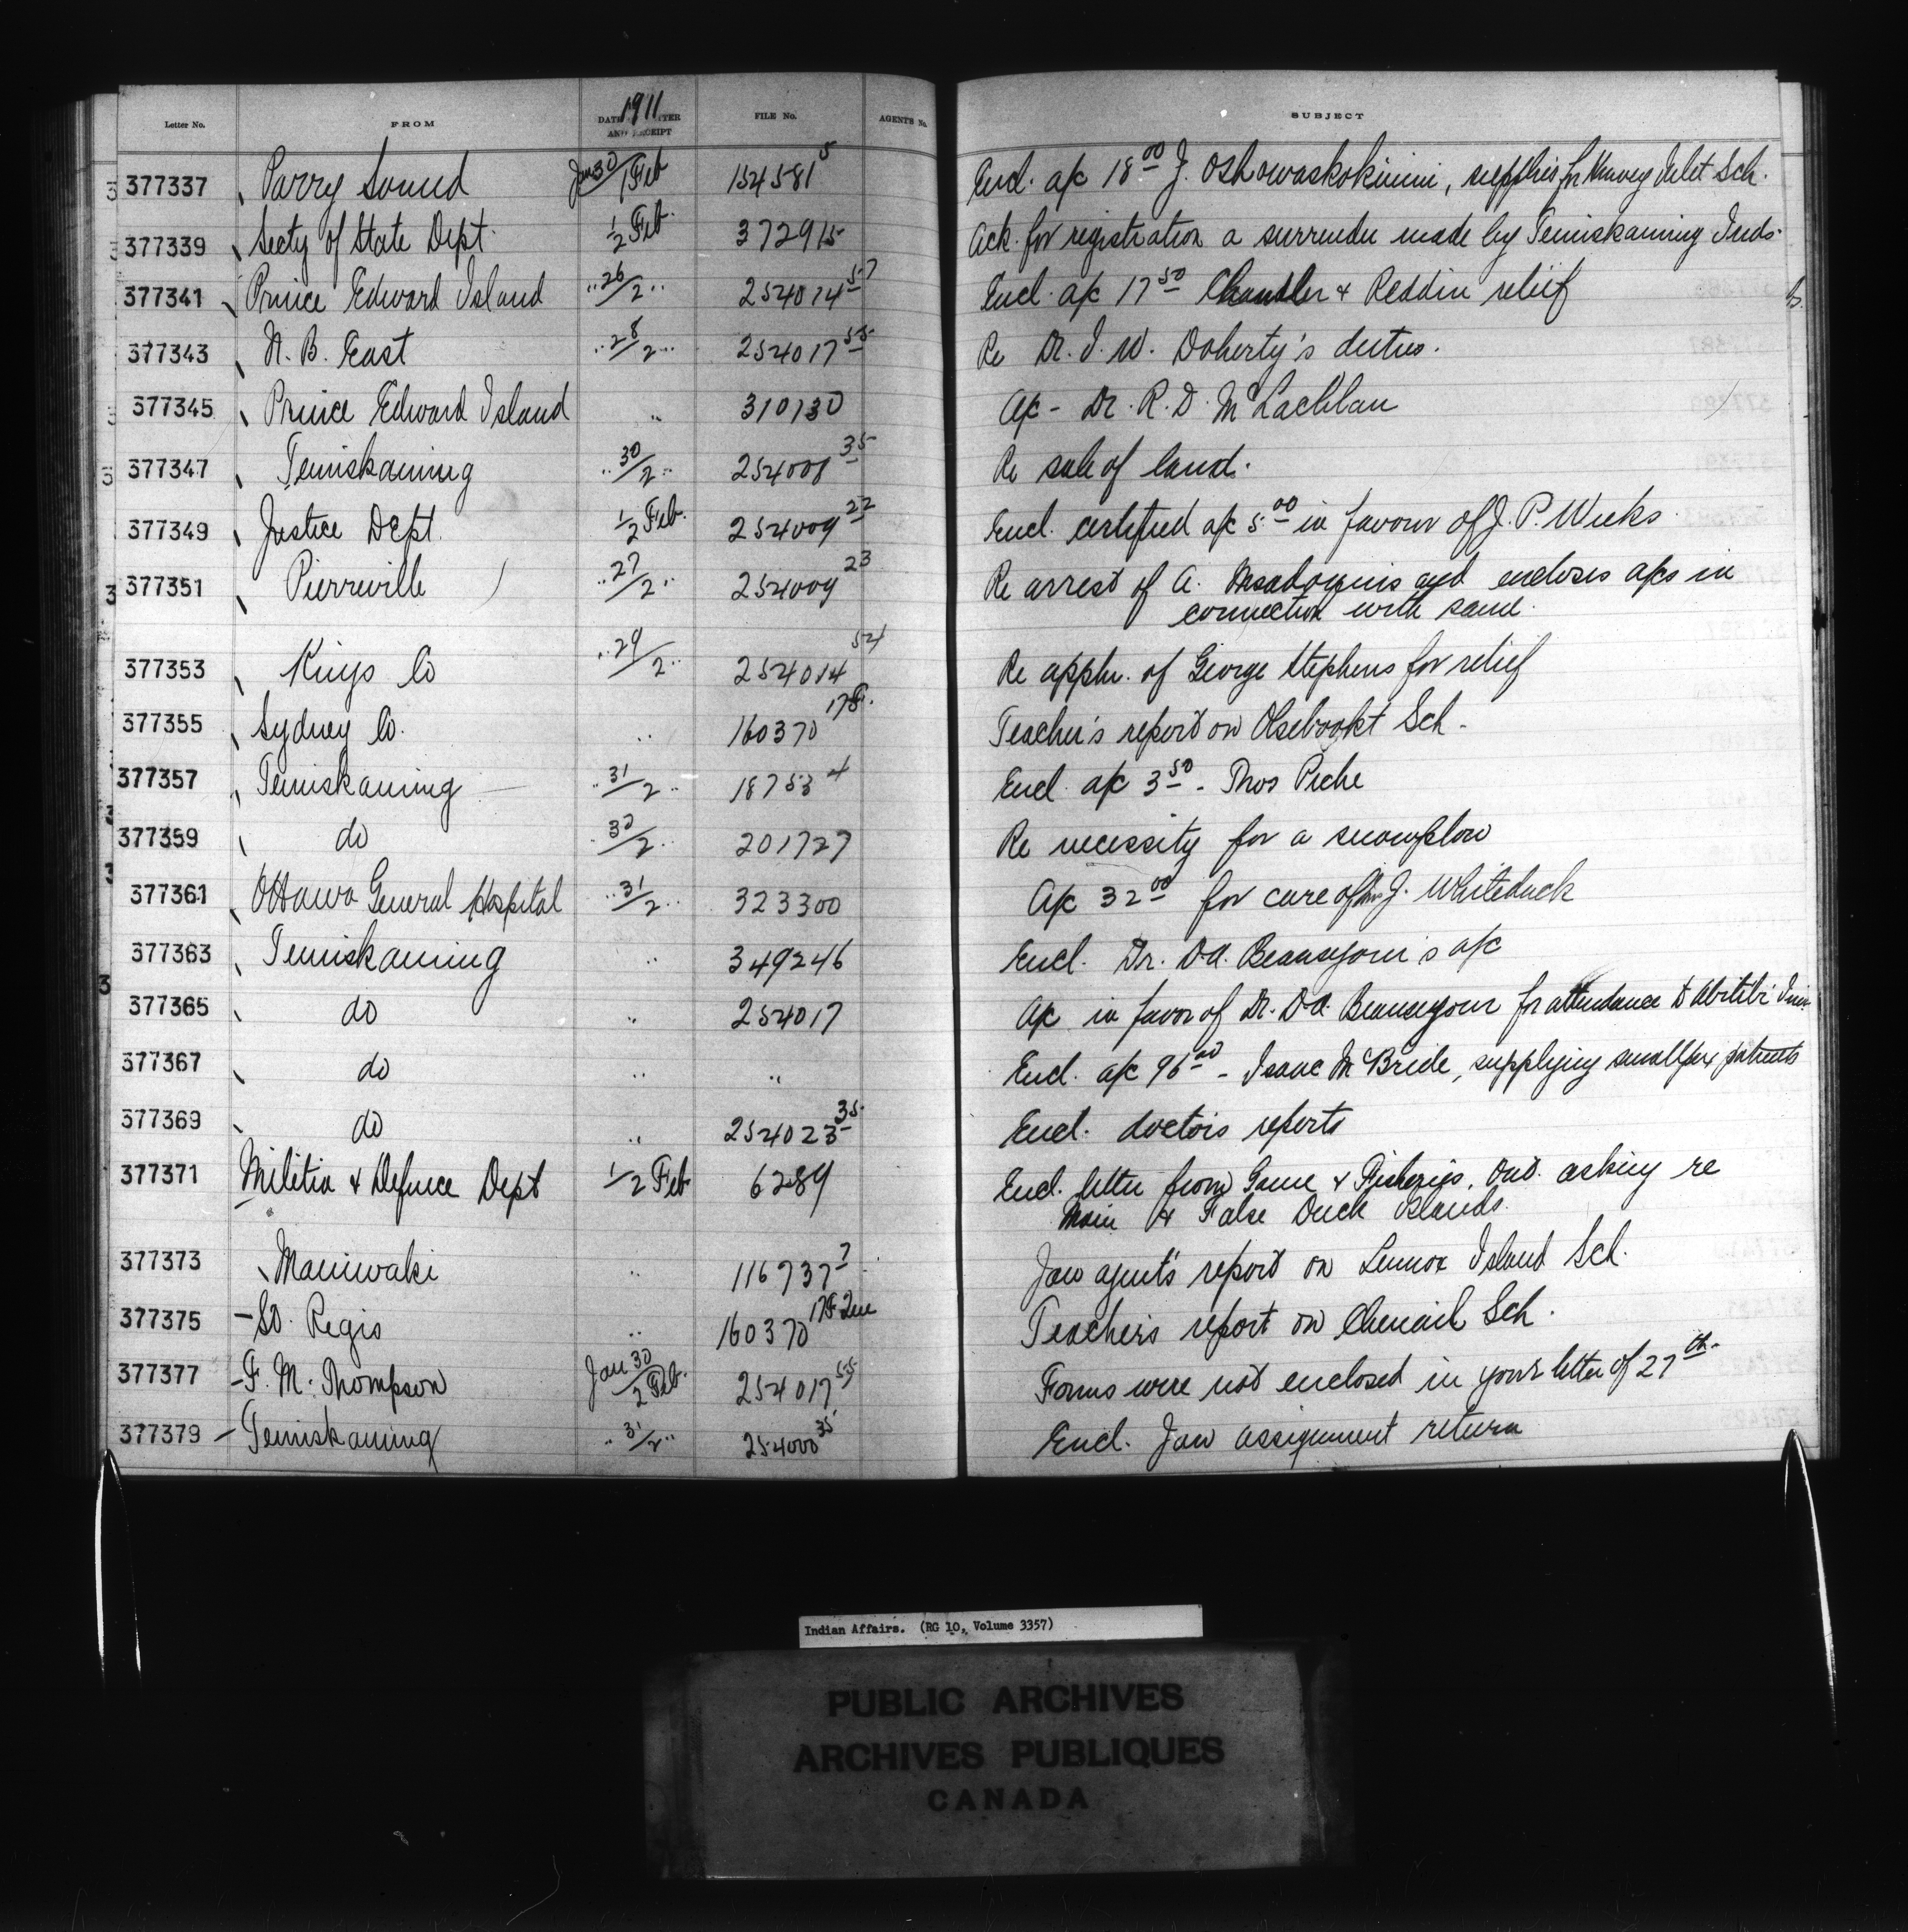 Letter No. FROM 1911 DATE OF LETTER AND RECEIPT FILE No. AGENT'S No. SUBJECT
377337 Parry Sound Jan 30/1 Feb 154581 5 Encl. a/c 18 00 J. Oshowaskokinini, supplies for Henvey Inlet Sch.
377339 Secty of State Dept. 1/2 Feb. 372915 Ack. for registration a surrender made by Temiskaming Inds.
377341 Prince Edward Island .. 26/2 .. 254014 57 Encl. a/c 17 50 Chandler & Reddin relief
377343 N. B. East .. 28/2 .. 254017 55 Re Dr. I. W. Doherty's duties.
377345 Prince Edward Island .. 310130 a/c - Dr. R. D. McLachlan
377347 Temiskaming .. 30/2 .. 254008 35 Re sale of land.
377349 Justice Dept. 1/2 Feb. 254009 22 Encl. certified a/c 5 00 in favour of J. P. Weeks
377351 Pierreville .. 27/2 .. 254009 23 Re arrest of A. and encloses a/cs in
connection with same.
377353 Kings Co .. 29/2 .. 254014 54 Re appln. of George Stephens for relief
377355 Sydney Co. .. 160370 Teacher's report on Sch.
377357 Temiskaming .. 31/2 .. 18753 4 Encl. a/c 3 50 - Thos Piche
377359 do .. 30/2 .. 201727 Re necessity for a snowplow
377361 Ottawa General Hospital .. 31/2 .. 323300 a/c 32 00 for care of J. Whiteduck
377363 Temiskaming .. 349246 Encl. Dr. D.A. a/c
377365 do .. 254017 a/c in favor of Dr. D.A. for attendance to Abitibi
377367 do .. .. Encl. a/c 96 00 - Isaac McBride, supplying smallpox patients
377369 do .. 254023 35 Encl. doctors reports
377371 Militia & Defence Dept 1/2 Feb 6289 Encl. letter from Game & Fisheries, Ont. asking re
Main & False Duck Islands.
377373 Maniwaki .. 116737 7 Jan agent's report on Lennox Island Sch.
377375 St. Regis .. 160370 17F Que Teacher's report on Chenail Sch.
377377 F. M. Thompson Jan 30/2 Feb. 254017 55 Forms were not enclosed in your letter of 27th
377379 Temiskaming .. 31/2 .. 254000 35 Encl. Jan assignment return
Indian Affairs. (RG 10, Volume 3357)
PUBLIC ARCHIVES
ARCHIVES PUBLIQUES
CANADA